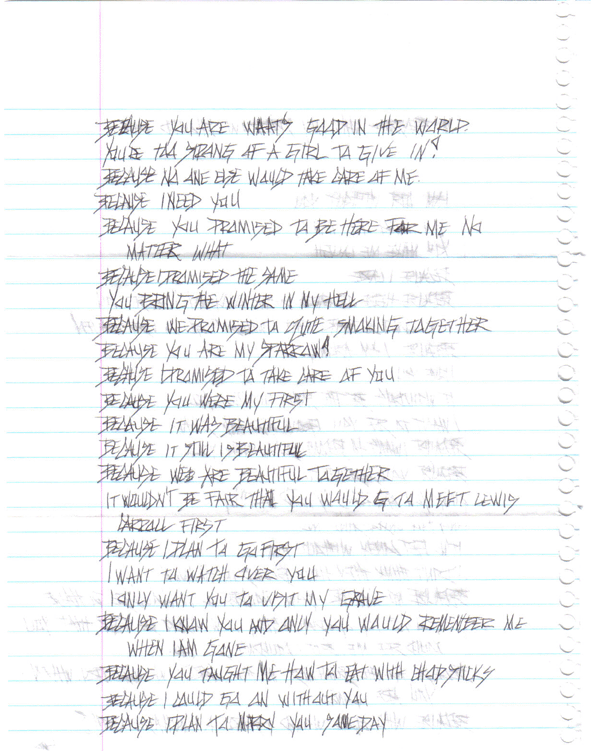 BECAUSE YOU ARE WHAT'S GOOD IN THE WORLD.
YOU'RE TOO STRONG OF A GIRL TO GIVE IN!
BECAUSE NO ONE ELSE WOULD TAKE CARE OF ME.
BECAUSE I NEED YOU
BECAUSE YOU PROMISED TO BE HERE FOR ME NO
MATTER WHAT
BECAUSE I PROMISED THE SAME
YOU BRING THE WINTER IN MY HELL
BECAUSE WE PROMISED TO QUITE SMOKING TOGETHER
BECAUSE YOU ARE MY SPARROW!
BECAUSE I PROMISED TO TAKE CARE OF YOU
BECAUSE YOU WERE MY FIRST
BECAUSE IT WAS BEAUTIFUL
BECAUSE IT STILL IS BEAUTIFUL
BECAUSE WE ARE BEAUTIFUL TOGETHER
IT WOULDN'T BE FAIR THAT YOU WOULD G TO MEET LEWIS
CARROLL FIRST
BECAUSE I PLAN TO GO FIRST
I WANT TO WATCH OVER YOU
I ONLY WANT YOU TO VISIT MY GRAVE
BECAUSE I KNOW YOU AND ONLY YOU WOULD REMEMBER ME
WHEN I AM GONE
BECAUSE YOU TAUGHT ME HOW TO EAT WITH CHOPSTICKS
BECAUSE I COULD GO ON WITHOUT YOU
BECAUSE I PLAN TO MARRY YOU SOMEDAY